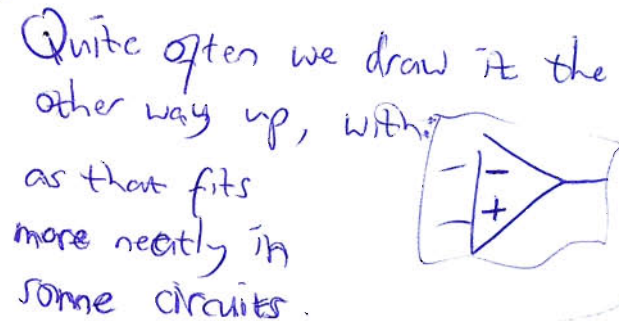 Quite often we draw it the
other way up, with:
as that fits
more neatly in
some circuits.
−
+